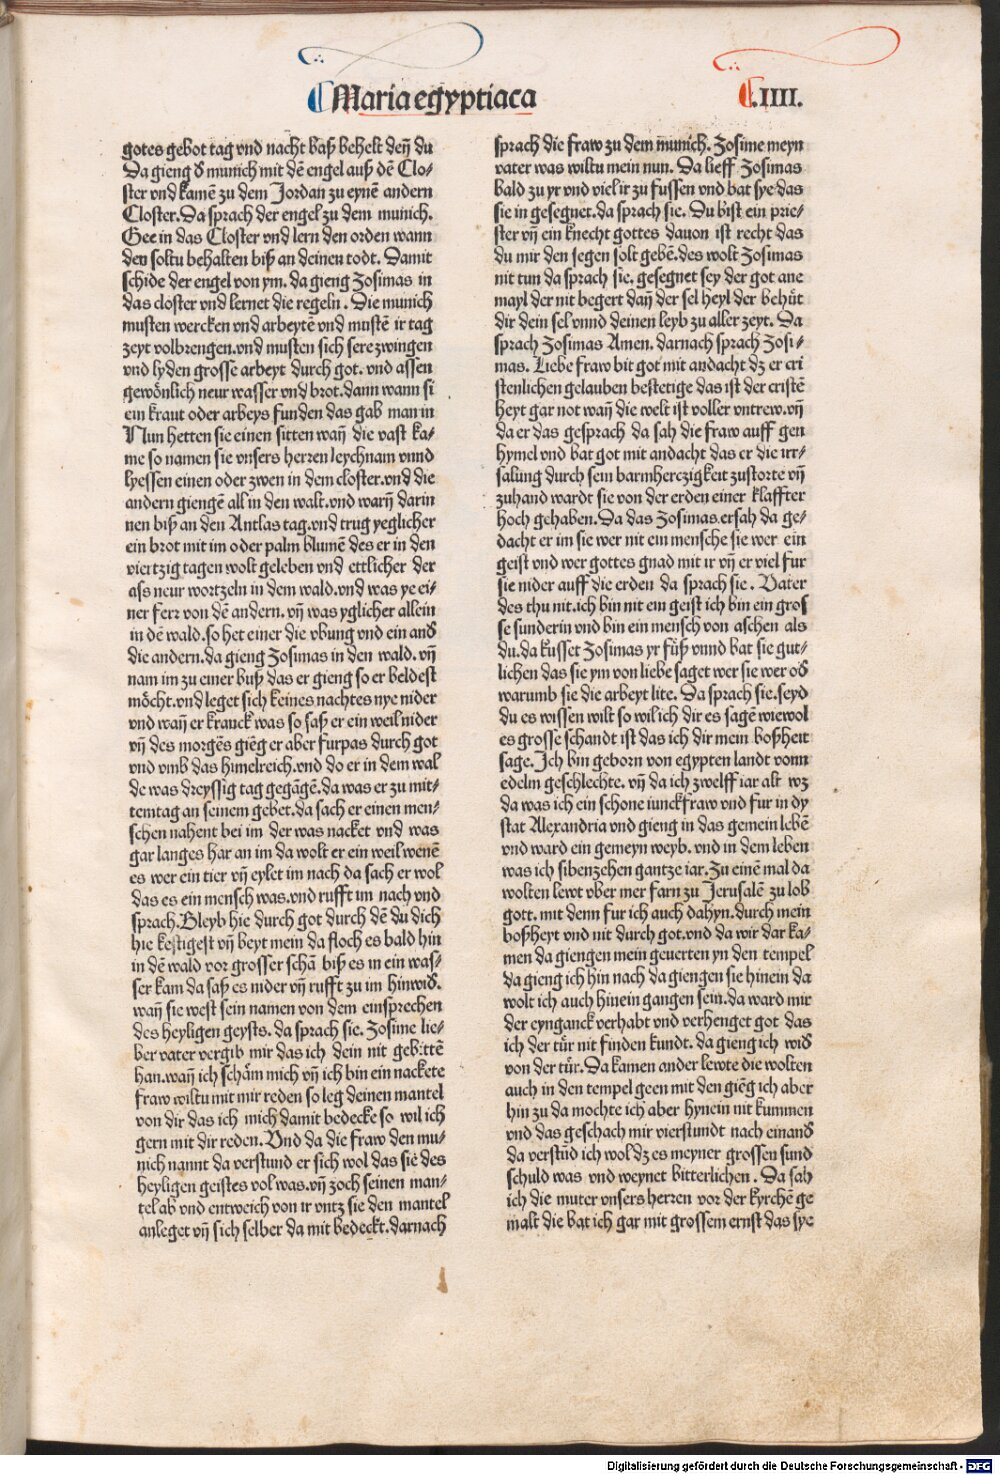 Maria egyptiaca
.IIII.
gotes gebot tag vnd nacht baß behelt deñ du
Da gieng d̕ munich mit dē engel auß dē Clo⸗
ster vnd kamē zu dem Jordan zu eynē andern
Closter. Da sprach der engel zu dem munich.
Gee in das Closter vnd lern den orden wann
den soltu behalten biß an deinen todt. Damit
schide der engel von ym. da gieng Zosimas in
das closter vnd lernet die regeln. Die munich
musten wercken vnd arbeytē vnd mustē ir tag
zeyt volbrengen. vnd musten sich sere zwingen
vnd lyden grosse arbeyt durch got. vnd assen
gewönlich neur wasser vnd brot. dann wann si
ein kraut oder arbeys funden das gab man in
Nun hetten sie einen sitten wañ die vast ka⸗
me so namen sie vnsers herren leychnam vnnd
lyessen einen oder zwen in dem closter. vnd die
andern giengē all in den walt. vnd warñ darin
nen biß an den Antlas tag. vnd trug yeglicher
ein brot mit im oder palm blumē des er in den
viertzig tagen wolt geleben vnd ettlicher der
ass neur wortzeln in dem wald. vnd was ye ei⸗
ner ferr von dē andern. vñ was yglicher allein
in dē wald. so het einer die vbung vnd ein and̕
die andern. da gieng Zosimas in den wald. vñ
nam im zu einer buß das er gieng so er beldest
möcht. vnd leget sich keines nachtes nye nider
vnd wañ er kranck was so saß er ein weil nider
vñ des morgēs giēg er aber furpas durch got
vnd vmb das himelreich. vnd do er in dem wal
de was dreyssig tag gegāgē. da was er zu mit⸗
temtag an seinem gebet. da sach er einen men⸗
schen nahent bei im der was nacket vnd was
gar langes har an im da wolt er ein weil wenē
es wer ein tier vñ eylet im nach da sach er wol
das es ein mensch was. vnd rufft im nach vnd
sprach. Bleyb hie durch got durch dē du dich
hie kestigest vñ beyt mein da floch es bald hin
in dē wald vor grosser schā biß es in ein was⸗
ser kam da saß es nider vñ rufft zu im hinwid̕.
wañ sie west sein namen von dem einsprechen
des heyligen geysts. da sprach sie. Zosime lie⸗
ber vater vergib mir das ich dein nit gebittē
han. wañ ich schäm mich vñ ich bin ein nackete
fraw wiltu mit mir reden so leg deinen mantel
von dir das ich mich damit bedecke so wil ich
gern mit dir reden. Vnd da die fraw den mu⸗
nich nannt da verstund er sich wol das sie des
heyligen geistes vol was. vñ zoch seinen man⸗
tel ab vnd entweich von ir vntz sie den mantel
anleget vñ sich selber da mit bedeckt. darnach
sprach die fraw zu dem munich. Zosime meyn
vater was wiltu mein nun. Da lieff Zosimas
bald zu yr vnd viel ir zu fussen vnd bat sye das
sie in gesegnet. da sprach sie. Du bist ein prie⸗
ster vñ ein knecht gottes dauon ist recht das
du mir den segen solt gebē. des wolt Zosimas
nit tun da sprach sie. gesegnet sey der got ane
mayl der nit begert dañ der sel heyl der behüt
dir dein sel vnnd deinen leyb zu aller zeyt. Da
sprach Zosimas Amen. darnach sprach Zosi⸗
mas. Liebe fraw bit got mit andacht dz er cri
stenlichen gelauben bestetige das ist der cristē
heyt gar not wañ die welt ist voller vntrew. vñ
da er das gesprach da sah die fraw auff gen
hymel vnd bat got mit andacht das er die irr⸗
salung durch sein barmherczigkeit zustorte vñ
zuhand wardt sie von der erden einer klaffter
hoch gehaben. Da das Zosimas ersah da ge⸗
dacht er im sie wer nit ein mensche sie wer ein
geist vnd wer gottes gnad mit ir vñ er viel fur
sie nider auff die erden da sprach sie. Vater
des thu nit. ich bin nit ein geist ich bin ein gros
se sunderin vnd bin ein mensch von aschen als
du. da kusset Zosimas yr füß vnnd bat sie gut⸗
lichen das sie ym von liebe saget wer sie wer od̕
warumb sie die arbeyt lite. Da sprach sie. seyd
du es wissen wilt so wil ich dir es sagē wiewol
es grosse schandt ist das ich dir mein boßheit
sage. Ich bin geborn von egypten landt vonn
edelm geschlechte. vñ da ich zwelff iar alt wz
da was ich ein schone iunckfraw vnd fur in dy
stat Alexandria vnd gieng in das gemein lebē
vnd ward ein gemeyn weyb. vnd in dem leben
was ich sibenzehen gantze iar. Zu einē mal da
wolten lewt vber mer farn zu Jerusalē zu lob
gott. mit denn fur ich auch dahyn. durch mein
boßheyt vnd nit durch got. vnd da wir dar ka⸗
men da giengen mein geuerten yn den tempel
da gieng ich hin nach da giengen sie hinein da
wolt ich auch hinein gangen sein. da ward mir
der eynganck verhabt vnd verhenget got das
ich der tür nit finden kundt. da gieng ich wid̕
von der tür. Da kamen ander lewte die wolten
auch in den tempel geen mit den giēg ich aber
hin zu da mochte ich aber hynein nit kummen
vnd das geschach mir vierstundt nach einand̕
da verstūd ich wol dz es meyner grossen sund
schuld was vnd weynet bitterlichen. Da sah
ich die muter vnsers herren vor der kyrchē ge
malt die bat ich gar mit grossem ernst das sye
Digitalisierung gefördert durch die Deutsche Forschungsgemeinschaft - DFG